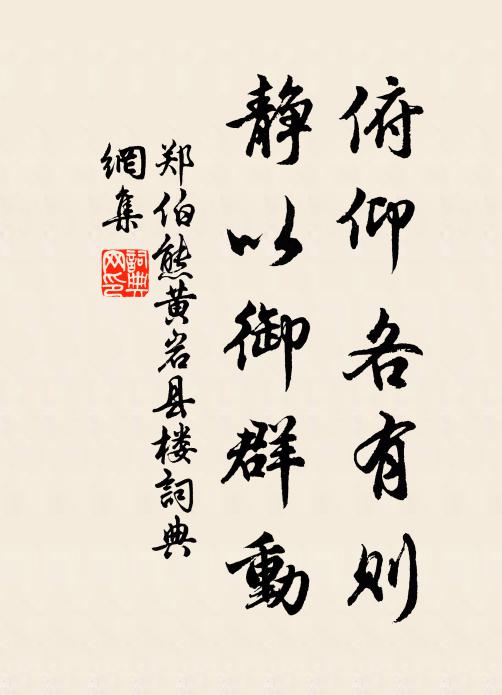 俯仰各有则
静以御群動
郑伯熊黄岩县楼詞典
網集
詞典
网印